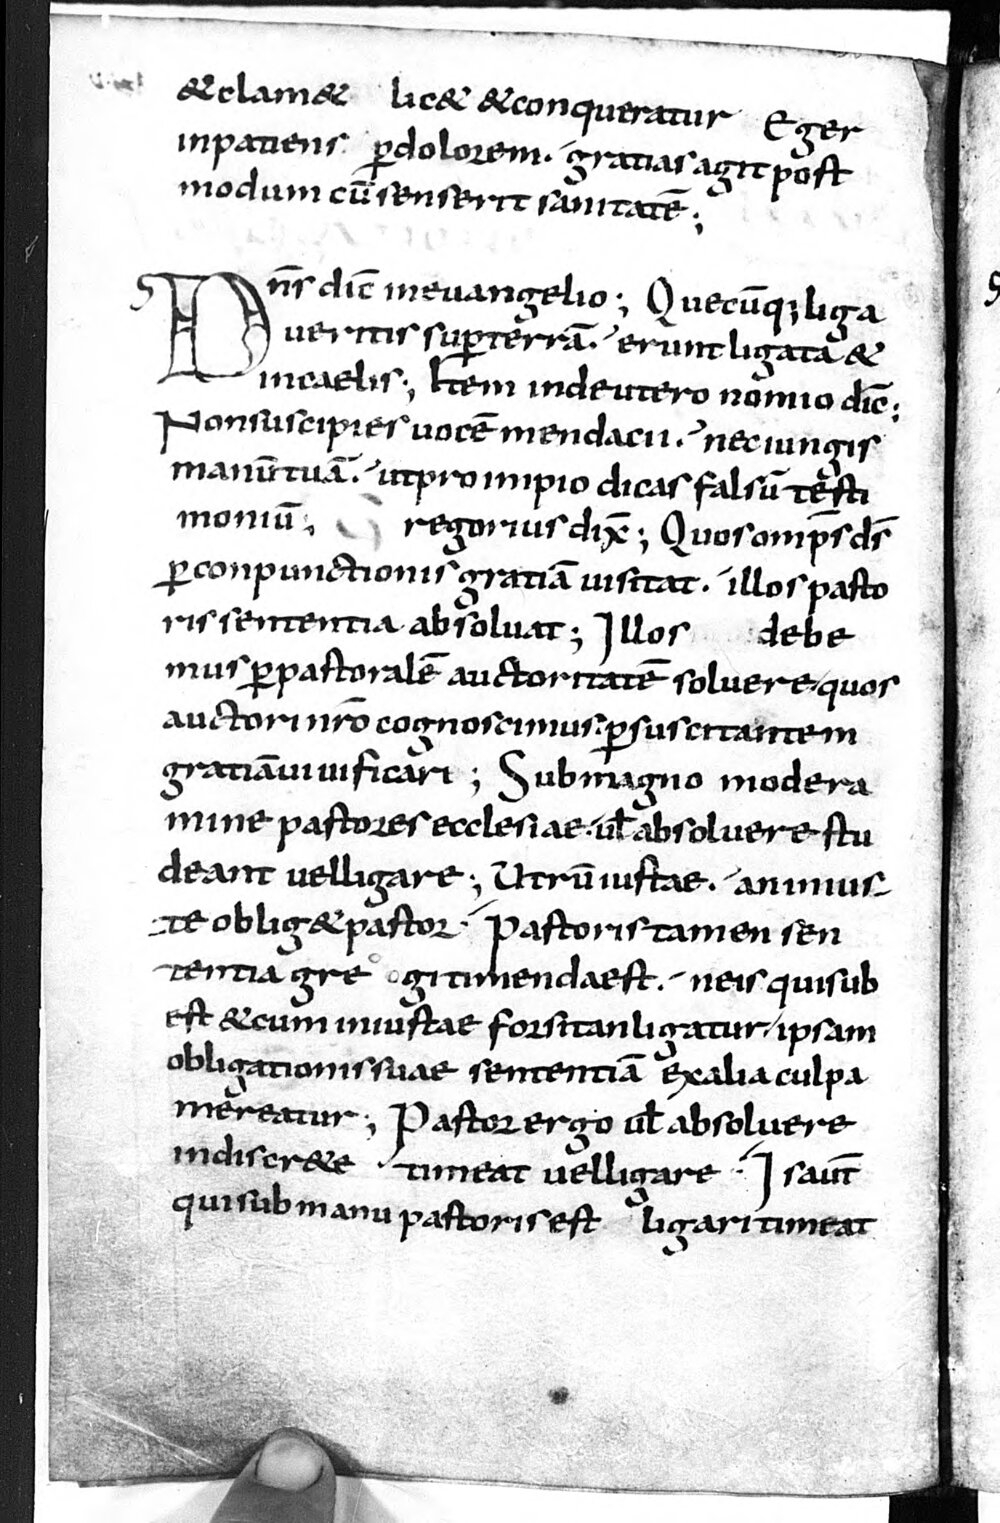 &clam& lic& &conqueratur Eger
inpatiens ꝑdolorem. gratias agit post
modum cū senserit sanitatē;
Dn̄s dic̄ ineuangelio; Quecūq; liga
ueritis suꝑterrā. erunt ligata &
incaelis; Item indeutero nomio dic̄;
Nonsuscipies uocē mendacii. nec iungis
manū tuā. utpro impio dicas falsū testi
moniū; Gregorius dix̄; Quos omp̄s ds̄
ꝑconpunctionis gratiā uisitat. illos pasto
ris sententia absoluat; Illos debe
mus ꝑpastoralē auctoritatē soluere quos
auctori nr̄o cognoscimus ꝑsuscitantem
gratiā uiuificari; Sub magno modera
mine pastores ecclesiae. ul̄ absoluere stu
deant uel ligare; Utrū iustae. an inius
te oblig& pastor. Pastoris tamen sen
tentia gre gi timenda est. ne is qui sub
est &cum iniustae forsitan ligatur ipsam
obligationis suae sententiā ex alia culpa
mereatur; Pastor ergo ul̄ absoluere
indiscr&e timeat uel ligare. Is aut̄
qui sub manu pastoris est ligari timeat